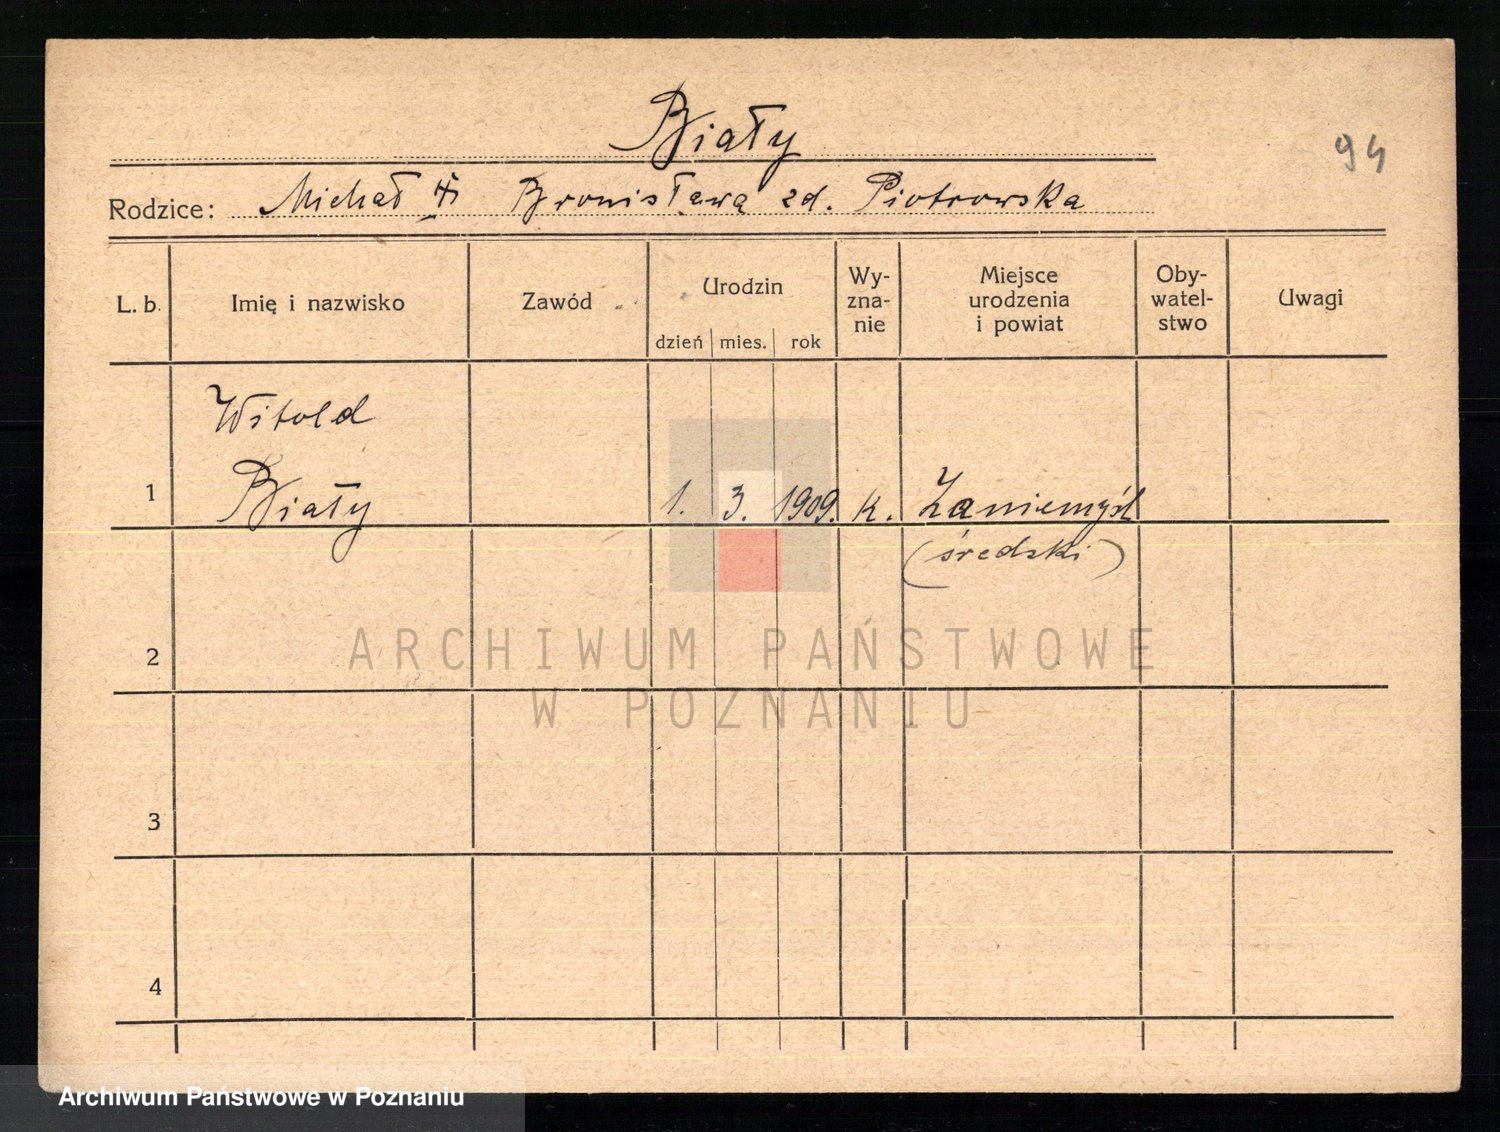 Biały
94
Rodzice: Michał i Bronisława zd. Piotrowska
L. b. Imię i nazwisko Zawód Urodzin Wy-zna-nie Miejsce urodzenia i powiat Oby-watel-stwo Uwagi
dzień mies. rok
Witold
1 Biały 1. 3. 1909. k. Zaniemyśl
(średzki)
2
ARCHIWUM PAŃSTWOWE
W POZNANIU
3
4
Archiwum Państwowe w Poznaniu